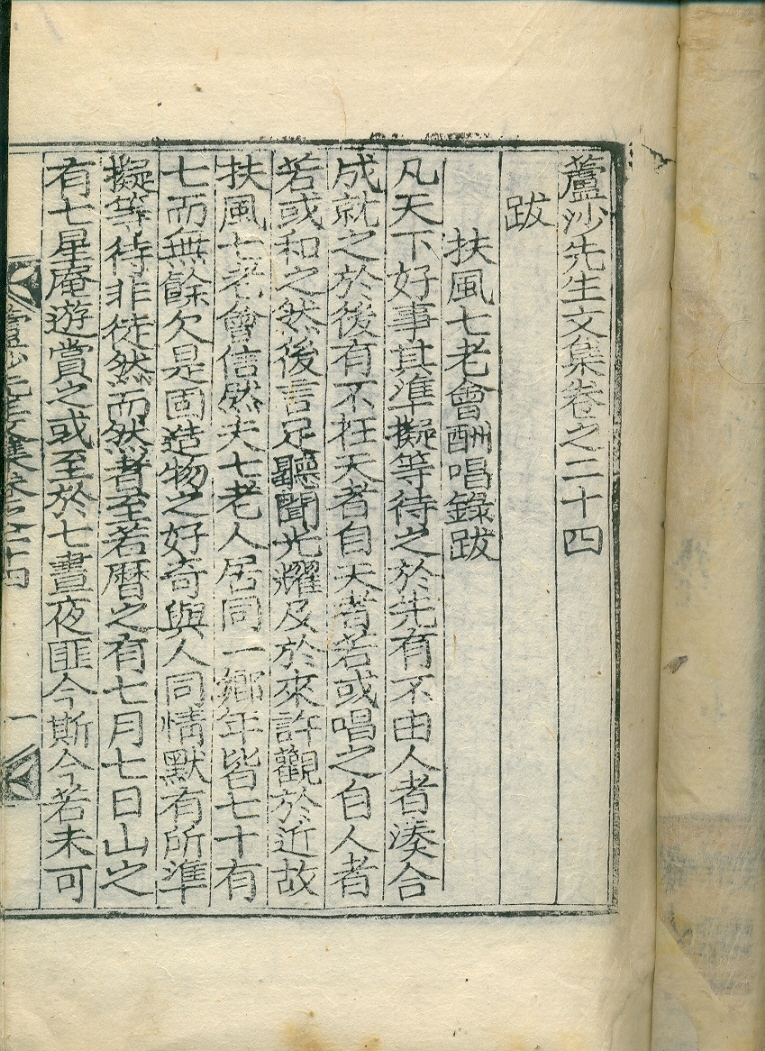 蘆沙先生文集卷之二十四
跋
扶風七老會酬唱錄跋
凡天下好事其準擬等待之於先有不由人者湊合
成就之於後有不在天者自天者若或唱之自人者
若或和之然後言足聽聞光耀及於來許觀於近故
扶風七老會信然夫七老人居同一鄉年皆七十有
七而無餘欠是固造物之好奇與人同情默有所準
擬等待非徒然而然者至若曆之有七月七日山之
有七星庵遊賞之或至於七晝夜匪今斯今若未可
蘆沙先生文集卷之二十四 一